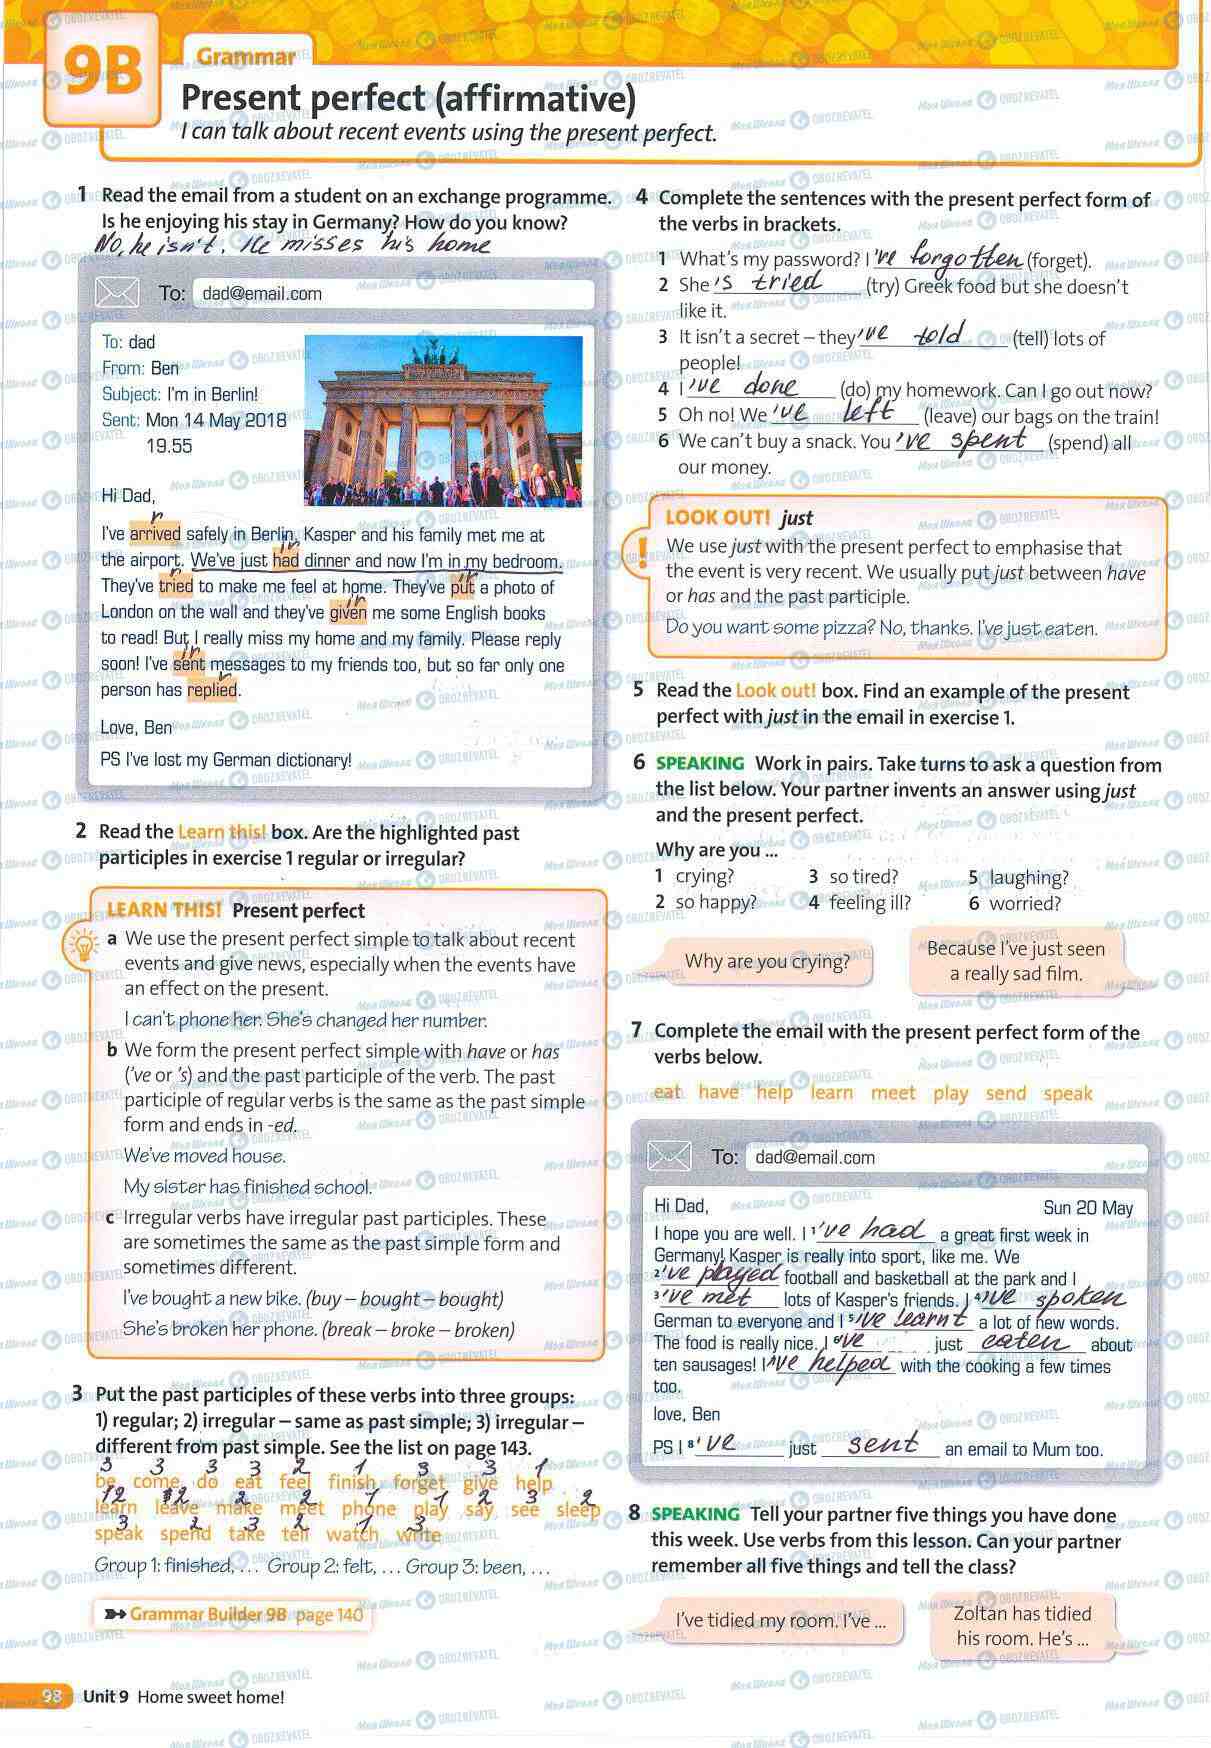 9B
Grammar
Present perfect (affirmative)
I can talk about recent events using the present perfect.
1 Read the email from a student on an exchange programme.
Is he enjoying his stay in Germany? How do you know?
No, he isn't. He misses his home
To: dad@email.com
To: dad
From: Ben
Subject: I'm in Berlin!
Sent: Mon 14 May 2018
19.55
Hi Dad,
r
I've arrived safely in Berlin. Kasper and his family met me at
ir
the airport. We've just had dinner and now I'm in my bedroom.
r ir
They've tried to make me feel at home. They've put a photo of
ir
London on the wall and they've given me some English books
to read! But I really miss my home and my family. Please reply
ir
soon! I've sent messages to my friends too, but so far only one
r
person has replied.
Love, Ben
PS I've lost my German dictionary!
2 Read the Learn this! box. Are the highlighted past
participles in exercise 1 regular or irregular?
LEARN THIS! Present perfect
a We use the present perfect simple to talk about recent
events and give news, especially when the events have
an effect on the present.
I can't phone her. She's changed her number.
b We form the present perfect simple with have or has
('ve or 's) and the past participle of the verb. The past
participle of regular verbs is the same as the past simple
form and ends in -ed.
We've moved house.
My sister has finished school.
c Irregular verbs have irregular past participles. These
are sometimes the same as the past simple form and
sometimes different.
I've bought a new bike. (buy – bought – bought)
She's broken her phone. (break – broke – broken)
3 Put the past participles of these verbs into three groups:
1) regular; 2) irregular – same as past simple; 3) irregular –
different from past simple. See the list on page 143.
3 3 3 3 2 1 3 3 1
be come do eat feel finish forget give help
12 2 2 2 1 1 2 3 2
learn leave make meet phone play say see sleep
3 2 3 2 1 3
speak spend take tell watch write
Group 1: finished, … Group 2: felt, … Group 3: been, …
Grammar Builder 9B page 140
98 Unit 9 Home sweet home!
4 Complete the sentences with the present perfect form of
the verbs in brackets.
1 What's my password? I 've forgotten (forget).
2 She 's tried (try) Greek food but she doesn't
like it.
3 It isn't a secret – they 've told (tell) lots of
people!
4 I 've done (do) my homework. Can I go out now?
5 Oh no! We 've left (leave) our bags on the train!
6 We can't buy a snack. You 've spent (spend) all
our money.
LOOK OUT! just
We use just with the present perfect to emphasise that
the event is very recent. We usually put just between have
or has and the past participle.
Do you want some pizza? No, thanks. I've just eaten.
5 Read the Look out! box. Find an example of the present
perfect with just in the email in exercise 1.
6 SPEAKING Work in pairs. Take turns to ask a question from
the list below. Your partner invents an answer using just
and the present perfect.
Why are you …
1 crying? 3 so tired? 5 laughing?
2 so happy? 4 feeling ill? 6 worried?
Why are you crying?
Because I've just seen
a really sad film.
7 Complete the email with the present perfect form of the
verbs below.
eat have help learn meet play send speak
To: dad@email.com
Hi Dad, Sun 20 May
I hope you are well. I 1 've had a great first week in
Germany! Kasper is really into sport, like me. We
2 've played football and basketball at the park and I
3 've met lots of Kasper's friends. I 4 've spoken
German to everyone and I 5 've learnt a lot of new words.
The food is really nice. I 6 've just eaten about
ten sausages! I 7 've helped with the cooking a few times
too.
love, Ben
PS I 8 've just sent an email to Mum too.
8 SPEAKING Tell your partner five things you have done
this week. Use verbs from this lesson. Can your partner
remember all five things and tell the class?
I've tidied my room. I've …
Zoltan has tidied
his room. He's …
Моя Школа OBOZREVATEL